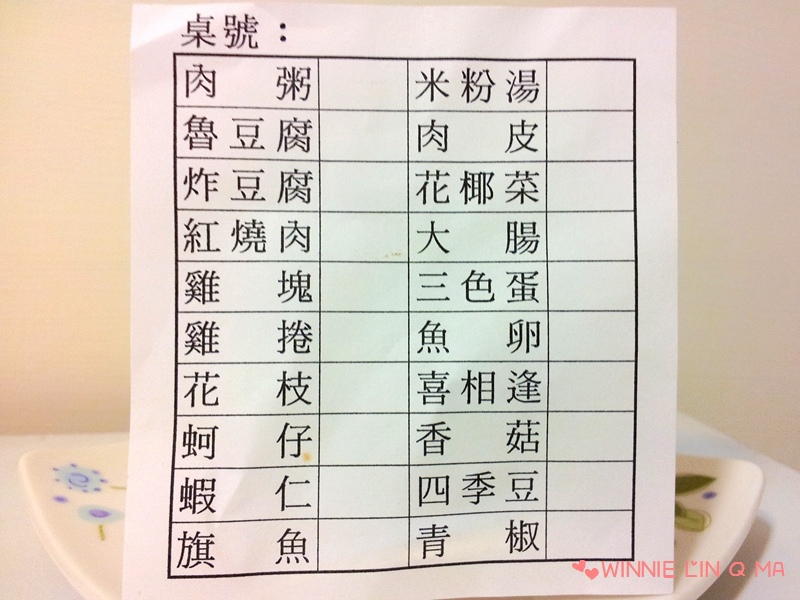 桌號：
肉粥 米粉湯
魯豆腐 肉皮
炸豆腐 花椰菜
紅燒肉 大腸
雞塊 三色蛋
雞捲 魚卵
花枝 喜相逢
蚵仔 香菇
蝦仁 四季豆
旗魚 青椒
WINNIE LIN Q MA